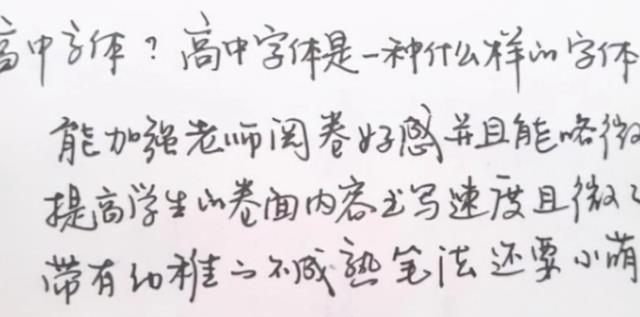 高中字体？高中字体是一种什么样的字体
能加强老师阅卷好感并且能略微
提高学生的卷面内容书写速度且微
带有幼稚之不成熟笔法还要小萌